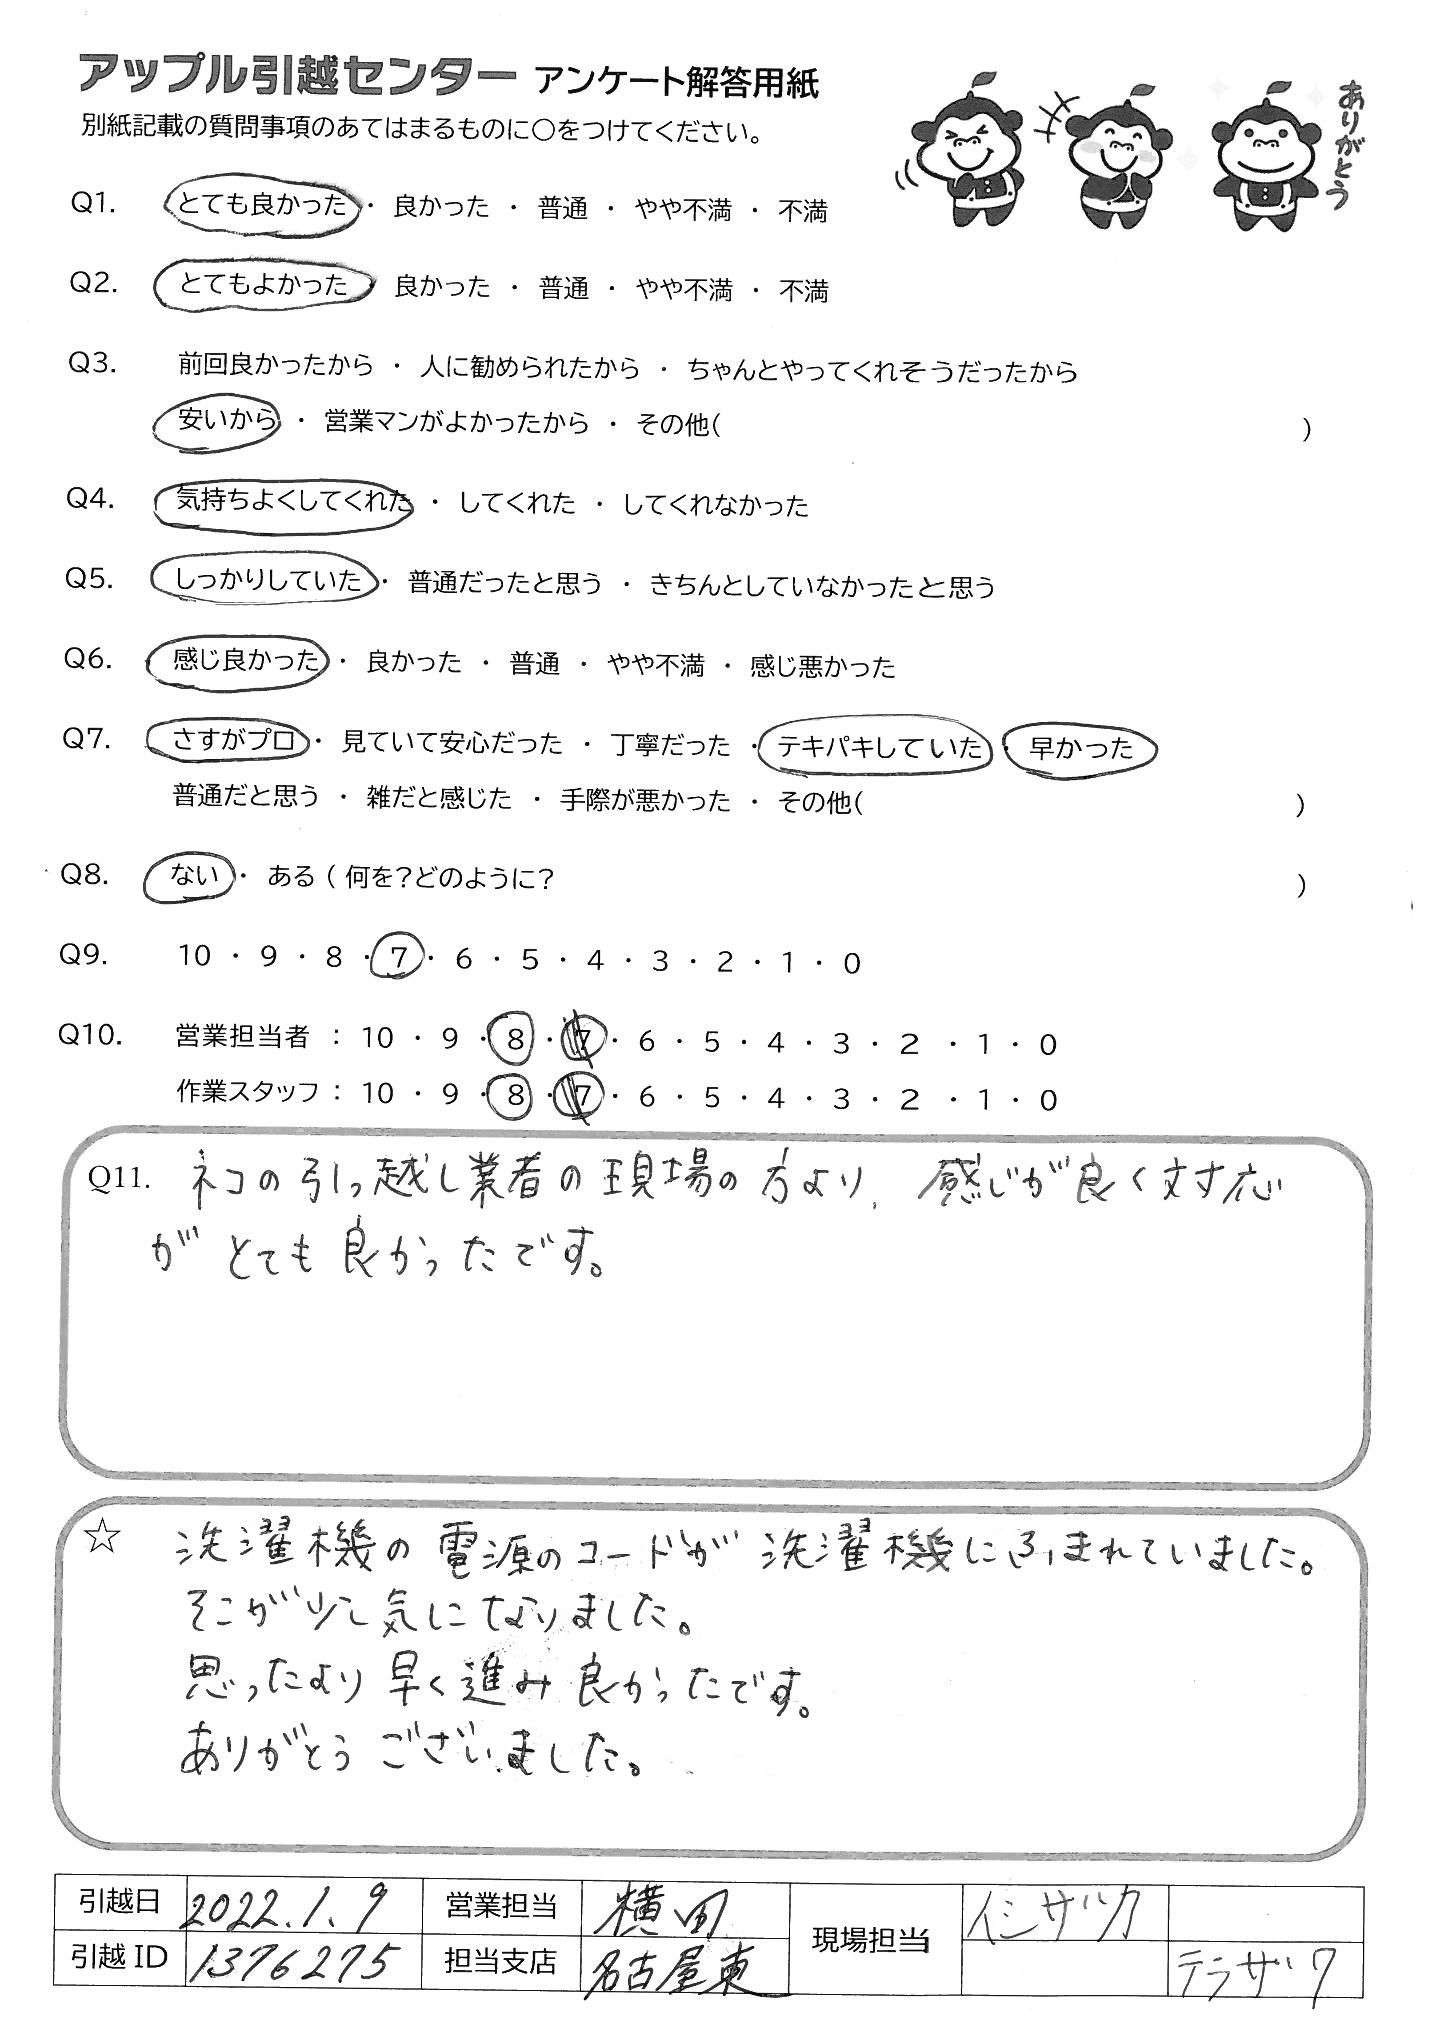 アップル引越センター アンケート解答用紙
ありがとう
別紙記載の質問事項のあてはまるものに〇をつけてください。
Q1. とても良かった ・ 良かった ・ 普通 ・ やや不満 ・ 不満
Q2. とてもよかった ・ 良かった ・ 普通 ・ やや不満 ・ 不満
Q3. 前回良かったから ・ 人に勧められたから ・ ちゃんとやってくれそうだったから
安いから ・ 営業マンがよかったから ・ その他( )
Q4. 気持ちよくしてくれた ・ してくれた ・ してくれなかった
Q5. しっかりしていた ・ 普通だったと思う ・ きちんとしていなかったと思う
Q6. 感じ良かった ・ 良かった ・ 普通 ・ やや不満 ・ 感じ悪かった
Q7. さすがプロ ・ 見ていて安心だった ・ 丁寧だった ・ テキパキしていた 早かった
普通だと思う ・ 雑だと感じた ・ 手際が悪かった ・ その他( )
Q8. ない ・ ある ( 何を？どのように？ )
Q9. 10 ・ 9 ・ 8 ・ 7 ・ 6 ・ 5 ・ 4 ・ 3 ・ 2 ・ 1 ・ 0
Q10. 営業担当者 ： 10 ・ 9 ・ 8 ・ 7 ・ 6 ・ 5 ・ 4 ・ 3 ・ 2 ・ 1 ・ 0
作業スタッフ ： 10 ・ 9 ・ 8 ・ 7 ・ 6 ・ 5 ・ 4 ・ 3 ・ 2 ・ 1 ・ 0
Q11. ネコの引っ越し業者の現場の方より、感じが良く対応
がとても良かったです。
☆ 洗濯機の電源のコードが洗濯機にふまれていました。
そこが少し気になりました。
思ったより早く進み良かったです。
ありがとうございました。
引越日 2022.1.9 営業担当 横田 現場担当 イシザカ
引越 ID 1376275 担当支店 名古屋東 テラザワ